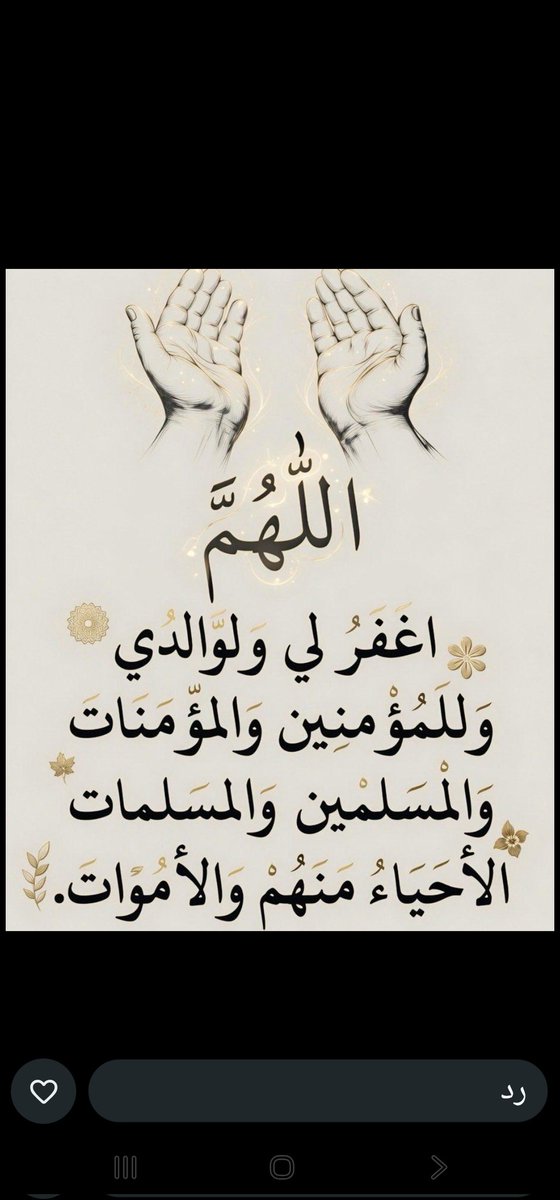 اللّٰهُمَّ
اغَفَرُ لي وَلوَّالدُي
وَللَمُؤْمنِين وَالمؤّمَنَاتَ
وَالْمسَلمْين وَالمسَلمات
الأحَيَاءُ مَنَهُمْ وَالأمُوَاتَ.
رد